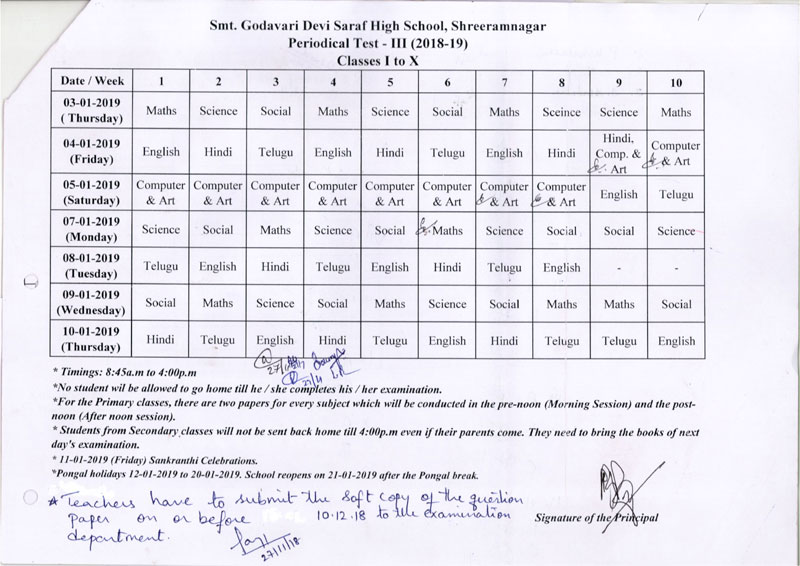 Smt. Godavari Devi Saraf High School, Shreeramnagar
Periodical Test - III (2018-19)
Classes I to X
Date / Week 1 2 3 4 5 6 7 8 9 10
03-01-2019 ( Thursday) Maths Science Social Maths Science Social Maths Sceince Science Maths
04-01-2019 (Friday) English Hindi Telugu English Hindi Telugu English Hindi Hindi, Comp. & Art Computer & Art
05-01-2019 (Saturday) Computer & Art Computer & Art Computer & Art Computer & Art Computer & Art Computer & Art Computer & Art Computer & Art English Telugu
07-01-2019 (Monday) Science Social Maths Science Social Maths Science Social Social Science
08-01-2019 (Tuesday) Telugu English Hindi Telugu English Hindi Telugu English - -
09-01-2019 (Wednesday) Social Maths Science Social Maths Science Social Maths Maths Social
10-01-2019 (Thursday) Hindi Telugu English Hindi Telugu English Hindi Telugu Telugu English
* Timings: 8:45a.m to 4:00p.m
*No student wil be allowed to go home till he / she completes his / her examination.
*For the Primary classes, there are two papers for every subject which will be conducted in the pre-noon (Morning Session) and the post-
noon (After noon session).
* Students from Secondary classes will not be sent back home till 4:00p.m even if their parents come. They need to bring the books of next
day's examination.
* 11-01-2019 (Friday) Sankranthi Celebrations.
*Pongal holidays 12-01-2019 to 20-01-2019. School reopens on 21-01-2019 after the Pongal break.
* Teachers have to submit the soft copy of the question
paper on or before 10.12.18 to the examination
department.
27/11/18
Signature of the Principal